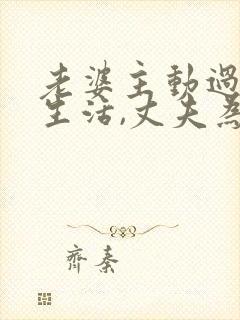 老婆主動過
生活,丈夫為
齊秦